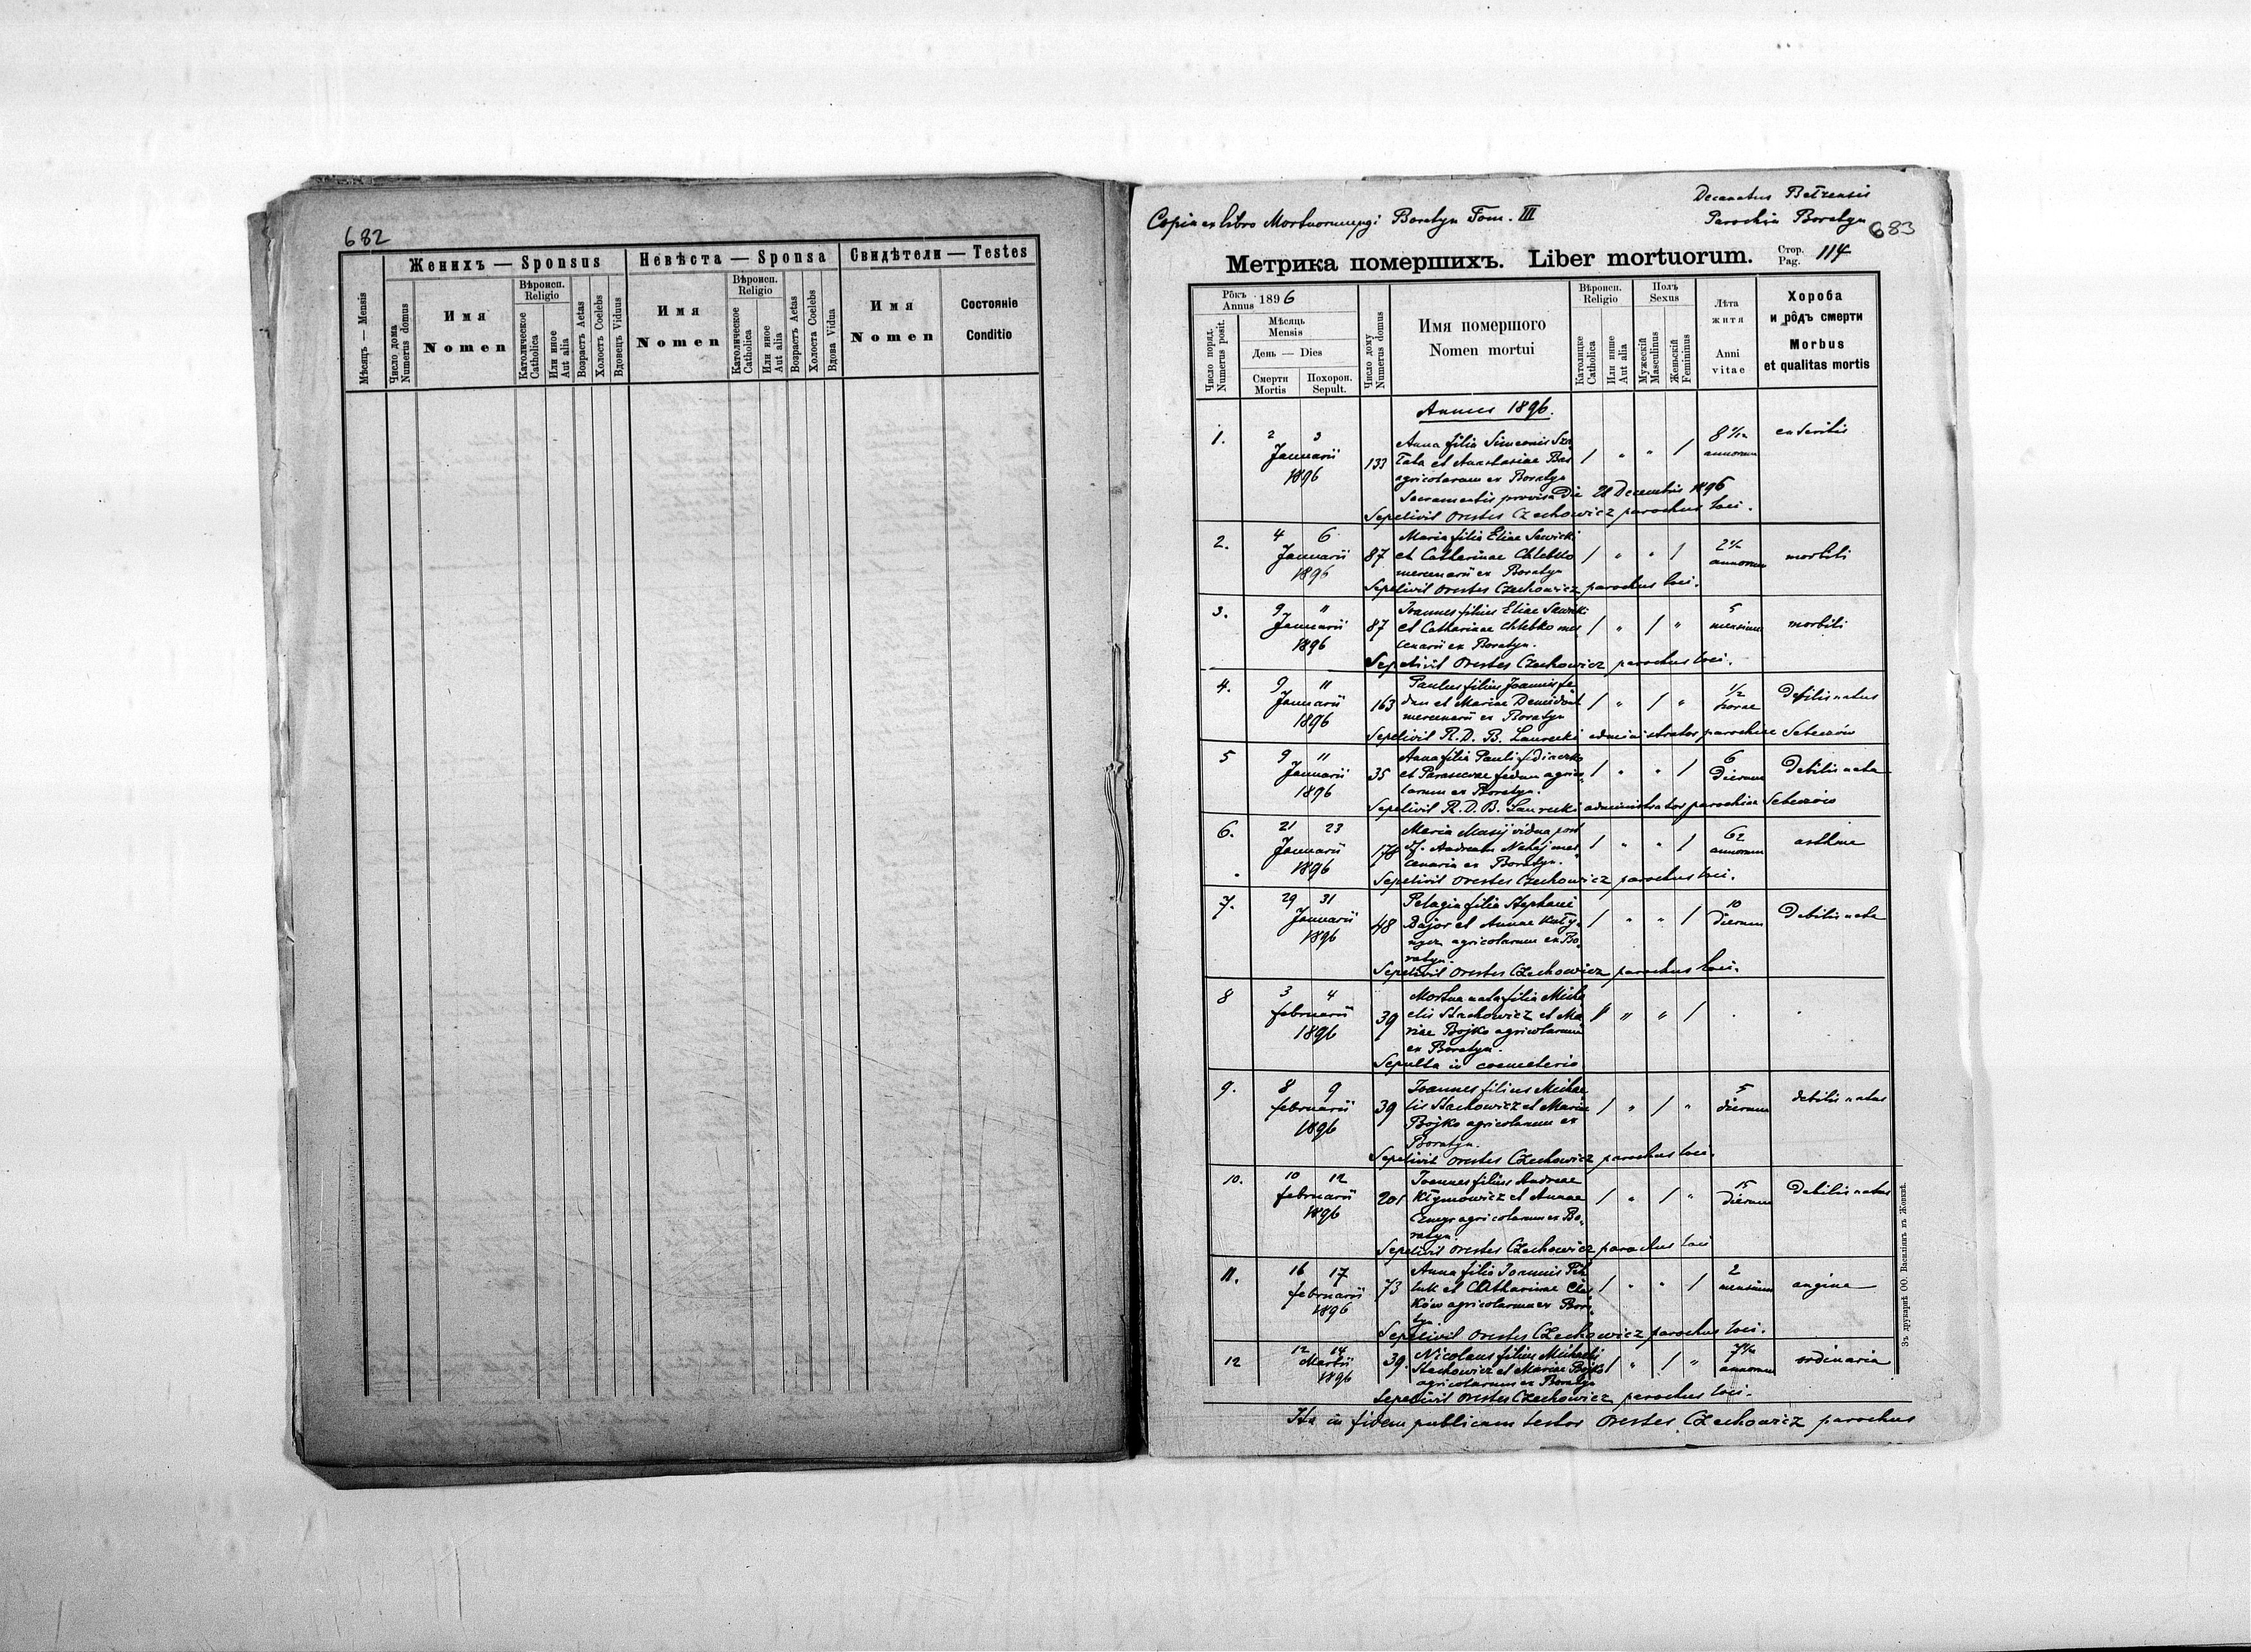 682
Женихъ — Sponsus
Невѣста — Sponsa
Свидѣтели — Testes
Мѣсяцъ — Mensis
Число дома
Numerus domus
Имя
Nomen
Вѣроисп.
Religio
Католическое
Catholica
Или иное
Aut alia
Возрастъ Aetas
Холостъ Coelebs
Вдовецъ Viduus
Имя
Nomen
Вѣроисп.
Religio
Католическое
Catholica
Или иное
Aut alia
Возрастъ Aetas
Холоста Coelebs
Вдова Vidua
Имя
Nomen
Состояніе
Conditio
Decanatus Bełzensis
Copia ex libro Mortuorum Boratyn Tom. III
Parochia Boratyn
683
Метрика помершихъ. Liber mortuorum.
Стор.
Pag. 114
Рôкъ
Annus 1896
Число поряд.
Numerus posit.
Мѣсяць
Mensis
День — Dies
Смерти
Mortis
Похорон.
Sepult.
Число дому
Numerus domus
Имя помершого
Nomen mortui
Вѣроисп.
Religio
Католицке
Catholica
Или инше
Aut alia
Полъ
Sexus
Мужескій
Masculinus
Женьскій
Femininus
Лѣта
житя
Anni
vitae
Хороба
и рôдъ смерти
Morbus
et qualitas mortis
Annus 1896.
1. 2 3 Januarii 1896 133 Anna filia Simeonis
et Anastasiae
agricolarum ex Boratyn / " " / 8 annorum
Sacramentis provisa Die 28 Decembris
Sepelivit Orestes Czechowicz parochus loci.
2. 4 6 Januarii 1896 87 Maria filia Eliae Sawicki
et Catharinae Chlebko
mercenarii ex Boratyn / " " / 2 annorum morbili
Sepelivit Orestes Czechowicz parochus loci.
3. 9 11 Januarii 1896 87 Joannes filius Eliae Sawicki
et Catharinae Chlebko mer
cenarii ex Boratyn. / " / " 5 mensium morbili
Sepelivit Orestes Czechowicz parochus loci.
4. 9 11 Januarii 1896 163 Paulus filius Joannis Fe
dun et Mariae
mercenarii ex Boratyn / " / " 1/2 horae Debilis natus
Sepelivit R. D. B. Laurecki administrator parochiae
5 9 11 Januarii 1896 35 Anna filia Pauli
et Parascevae Fedun agrico
larum ex Boratyn. / " " / 6 dierum Debilis nata
Sepelivit R. D. B. Laurecki administrator parochiae
6. 21 23 Januarii 1896 Maria Masij vidua post
df. Andream mer
cenaria ex Boratyn. / " " / 62 annorum asthme
Sepelivit Orestes Czechowicz parochus loci.
7. 29 31 Januarii 1896 48 Pelagia filia Stephani
Bajor et Annae
agricolarum ex Bo
ratyn. / " " / 10 dierum Debilis nata
Sepelivit Orestes Czechowicz parochus loci.
8 3 4 februarii 1896 39 Mortua nata filia Micha
elis Stachowicz et Ma
riae Bojko agricolarum
ex Boratyn. / " " / . .
Sepulta in coemeterio
9. 8 9 februarii 1896 39 Joannes filius Michae
lis Stachowicz et Mariae
Bojko agricolarum ex
Boratyn. / " / " 5 dierum debilis natus
Sepelivit Orestes Czechowicz parochus loci.
10. 10 12 februarii 1896 201 Joannes filius Andreae
Kłymowicz et Annae
agricolarum ex Bo
ratyn. / " / " 15 dierum Debilis natus
Sepelivit Orestes Czechowicz parochus loci
11. 16 17 februarii 1896 73 Anna filia Joannis
et Catharinae
agricolarum ex Bora
tyn. / " " / 2 mensium angina
Sepelivit Orestes Czechowicz parochus loci.
12 12 14 Martii 1896 39. Nicolaus filius Michaelis
Stachowicz et Mariae Bojko
agricolarum ex Boratyn / " / " annorum ordinaria
Sepelivit Orestes Czechowicz parochus loci.
Ita in fidem publicam testor Orestes Czechowicz parochus
Зъ друкарнѣ ОО. Василіянъ въ Жовквѣ.